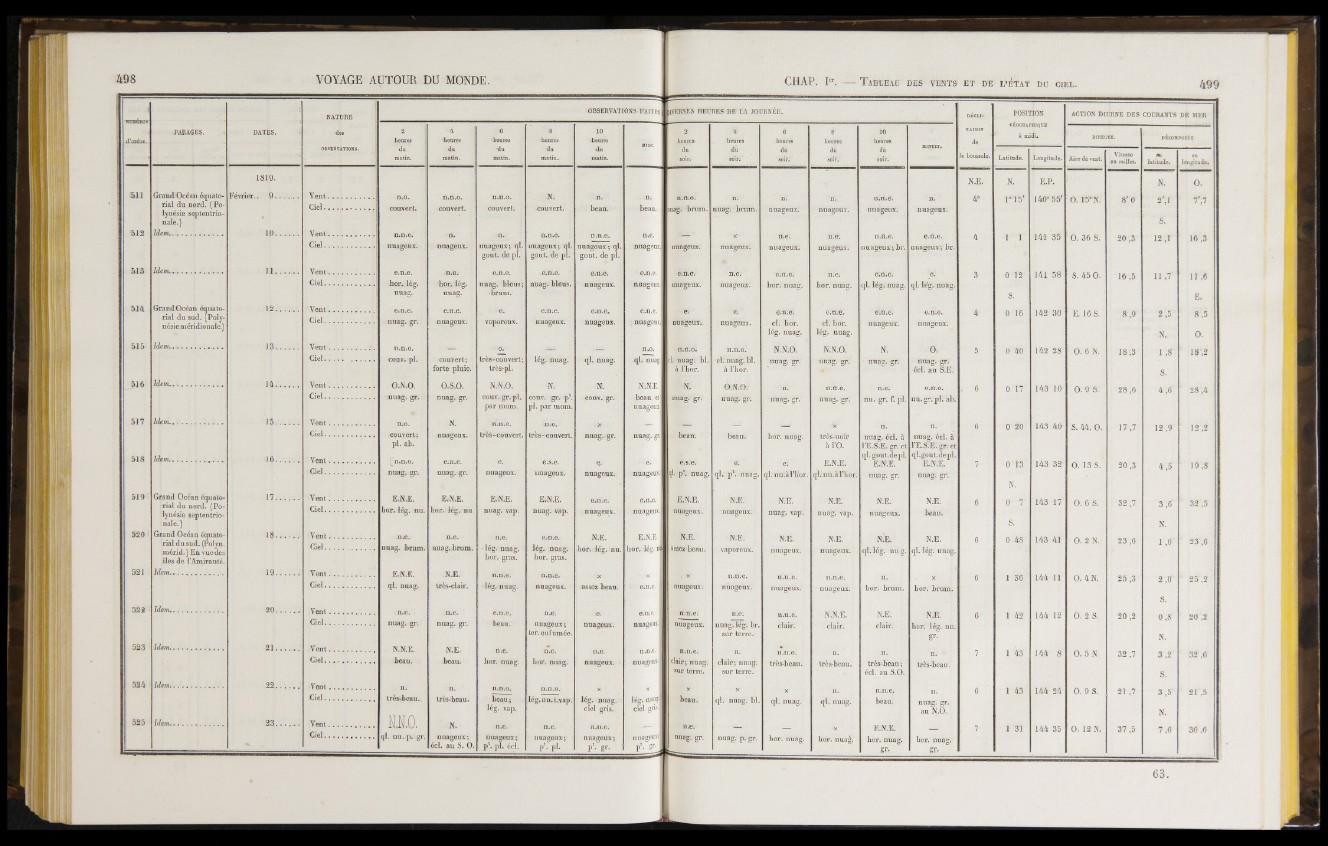 498 VOYAGE AUTOUR DU MONDE.
NUMÉROS d'ordre. PARAGES. DATES. NATURE des OBSERVATIONS. OBSERVATIONS FAITES
2 heures du matin. 4 heures du matin. 6 heures du matin. 8 heures du matin. 10 heures du matin. MIDI.
1819.
511 Grand Océan équatorial du nord. (Polynésie septentrionale.) Février.. 9 Vent n.o. n.n.o. n.n.o. N. n. n.
Ciel couvert. couvert. couvert. couvert. beau. beau.
512 Idem. 10 Vent n.n.e. n. n. n.n.e. n.n.e. n.e.
Ciel nuageux. nuageux. nuageux; ql. gout. de pl. nuageux; ql. gout. de pl. nuageux; ql. gout. de pl. nuageux
513 Idem. 11 Vent e.n.e. n.n. e.n.e. e.n.e. e.n.e. e.n.e.
Ciel hor. lég. nuag. hor. lég. nuag. nuag. bleus; brum. nuag. bleus. nuageux. nuageux
514 Grand Océan équatorial du sud. (Polynésie méridionale.) 12 Vent e.n.e. e.n.e. e. e.n.e. e.n.e. e.n.e.
Ciel nuag. gr. nuageux. vaporeux. nuageux. nuageux. nuageux
515 Idem. 13 Vent n.n.e. — o. — — n.o.
Ciel couv. pl. couvert; forte pluie. très-couvert; très-pl. lég. nuag. ql. nuag. ql. nuag
516 Idem. 14 Vent O.N.O. O.S.O. N.N.O. N. N. N.N.E.
Ciel nuag. gr. nuag. gr. couv. gr. pl. par mom. couv. gr. p'. pl. par mom. couv. gr. beau et nuageux
517 Idem. 15 Vent n.o. N. n.n.e. n.e. × —
Ciel couvert; pl. ab. nuageux. très-couvert. très-couvert. nuag. gr. nuag. gr
518 Idem. 16 Vent n.n.e. e.n.e. e. e.s.e. e. e.
Ciel nuag. gr. nuag. gr. nuageux. nuageux. nuageux. nuageux
519 Grand Océan équatorial du nord. (Polynésie septentrionale.) 17 Vent E.N.E. E.N.E. E.N.E. E.N.E. e.n.e. e.n.e.
Ciel hor. lég. nu. hor. lég. nu nuag. vap. nuag. vap. nuageux. nuageux
520 Grand Océan équatorial du sud. (Polyn. mérid.) En vue des îles de l'Amirauté. 18 Vent n.e. n.e. n.e. e.n.e. N.E. E.N.E.
Ciel nuag. brum. nuag. brum. lég. nuag. hor. gras. lég. nuag. hor. gras. hor. lég. nu. hor. lég. nu
521 Idem. 19 Vent E.N.E. N.E. n.n.e. n.n.e. × ×
Ciel ql. nuag. très-clair. lég. nuag. nuageux. assez beau. e.n.e.
522 Idem. 20 Vent n.e. n.e. e.n.e. n.e. e. e.n.e.
Ciel nuag. gr. nuag. gr. beau. nuageux; ter. enfumée. nuageux. nuageux
523 Idem. 21 Vent N.N.E. N.E. n.e. n.e. n.e. n.n.e.
Ciel beau. beau. hor. nuag. hor. nuag. nuageux. nuageux
524 Idem. 22 Vent n. n. n.n.o. n.n.o. × ×
Ciel très-beau. très-beau. beau; lég. vap. lég. nu. t. vap. lég. nuag. ciel gris. lég. nuag. ciel gris
525 Idem. 23 Vent N.N.O. N. n.e. n.e. n.n.e. —
Ciel ql. nu. p. gr. nuageux; écl. au S. O. nuageux; p'. pl. écl. nuageux; p'. pl. nuageux; p'. gr. nuageux p'. gr.
CHAP. Ier. — TABLEAU DES VENTS ET DE L'ÉTAT DU CIEL. 499
DIVERSES HEURES DE LA JOURNÉE. DÉCLINAISON de le boussole. POSITION GÉOGRAPHIQUE à midi. ACTION DIURNE DES COURANTS DE MER
2 heures du soir. 4 heures du soir. 6 heures du soir. 8 heures du soir. 10 heures du soir. MINUIT. Latitude. Longitude. DIRECTE. Aire de vent. Vitesse en milles. DÉCOMPOSÉE en latitude. en longitude.
N.E. N. E.P. N. O.
n.n.e. n. n. n. n.n.e. n. 4° 1°15' 140° 55' O. 15° N. 8' 0 2',1 7',7
nuag. brum. nuag. brum. nuageux. nuageux. nuageux. nuageux. S.
— × n.e. n.e. n.n.e. e.n.e. 4 1 1 141 35 O. 36 S. 20 ,3 12 ,1 16 ,3
nuageux. nuageux. nuageux. nuageux. nuageux; br. nuageux; br.
e.n.e. n.e. e.n.e. n.e. e.n.e. e. 3 0 12 141 58 S. 45 O. 16 ,5 11 ,7 11 ,6
nuageux. nuageux. hor. nuag. hor. nuag. ql. lég. nuag. ql. lég. nuag. S. E.
e. e. e.n.e. e.n.e. e.n.e. e.n.e. 4 0 16 142 30 E. 16 S. 8 ,9 2 ,5 8 ,5
nuageux. nuageux. cl. hor. lég. nuag. cl. hor. lég. nuag. nuageux. nuageux. N. O.
n.n.o. n.n.o. N.N.O. N.N.O. N. O. 5 0 40 142 28 O. 6 N. 18 ,3 1 ,8 18 ,2
cl. nuag. bl. à l'hor. cl. nuag. bl. à l'hor. nuag. gr. nuag. gr. nuag. gr. nuag. gr. écl. au S.E. S.
N. O.N.O. n. n.n.e. n.e. e.n.e. 6 0 17 143 10 O. 9 S. 28 ,6 4 ,6 28 ,4
nuag. gr. nuag. gr. nuag. gr. nuag. gr. nu. gr. f. pl. nu. gr. pl. ab.
— — — × n. n. 6 0 20 143 40 S. 44. O. 17 ,7 12 ,9 12 ,2
beau. beau. hor. nuag. très-noir à l'O. nuag. écl. à l'E.S.E. gr. et ql. gout. de pl. nuag. écl. à l'E.S.E. gr. et ql. gout. de pl.
e.s.e. e. e. E.N.E. E.N.E. E.N.E. 7 0 13 143 32 O. 13 S. 20 ,3 4 ,5 19 ,8
ql. p'. nuag. ql. p'. nuag. ql. nu. à l'hor. ql. nu. à l'hor. nuag. gr. nuag. gr. N.
E.N.E. N.E. N.E. N.E. N.E. N.E. 6 0 7 143 17 O. 6 S. 32 ,7 3 ,6 32 ,5
nuageux. nuageux. nuag. vap. nuag. vap. nuageux. beau. S. N.
N.E. N.E. N.E. N.E. N.E. N.E. 6 0 48 143 41 O. 2 N. 23 ,6 1 ,6 23 ,6
assez beau. vaporeux. nuageux. nuageux. ql. lég. nuag. ql. lég. nuag.
n.n.e. n.n.e. n.n.e. n. × 6 1 36 144 11 O. 4 N. 25 ,3 2 ,0 25 ,2
nuageux. nuageux. nuageux. nuageux. hor. brum. hor. brum. S.
n.n.e. n.e. n.n.e. N.N.E. N.E. N.E. 6 1 42 144 12 O. 2 S. 20 ,2 0 ,8 20 ,2
nuageux. nuag. lég. br. sur terre. clair. clair. clair. hor. lég. nu. gr. N.
n.n.e. n. n.n.e. n. n. n. 7 1 43 144 8 O. 5 N. 32 ,7 3 ,2 32 ,6
clair; nuag. sur terre. clair; nuag. sur terre. très-beau. très-beau. très-beau; écl. au S.O. très-beau. S.
× × × n. n.n.e. n. 6 1 43 144 24 O. 9 S. 21 ,7 3 ,5 21 ,5
beau. ql. nuag. bl. ql. nuag. ql. nuag. beau. nuag. gr. au N.O. N.
n.e. — — × E.N.E. — 7 1 31 144 35 O. 12 N. 37 ,5 7 ,6 36 ,6
nuag. gr. nuag. p. gr. hor. nuag. hor. nuag. hor. nuag. gr. hor. nuag. gr.
63.